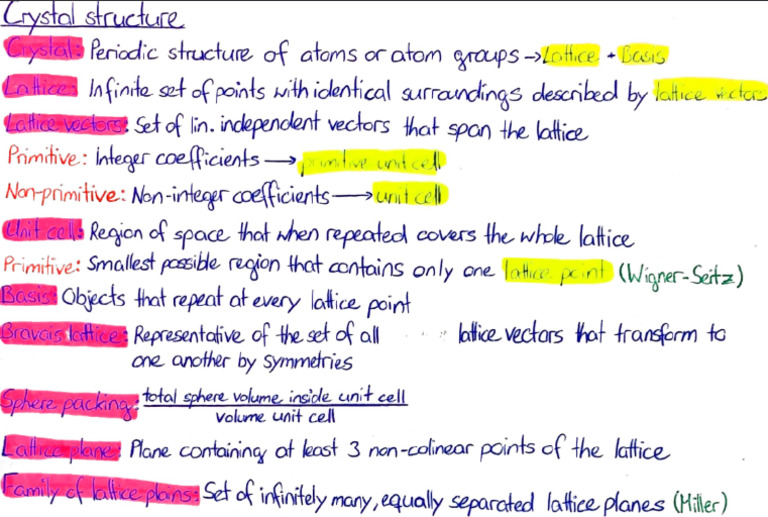 Crystal structure
Crystal: Periodic structure of atoms or atom groups → Lattice + Basis
Lattice: Infinite set of points with identical surroundings described by lattice vectors
Lattice vectors: Set of lin. independent vectors that span the lattice
Primitive: Integer coefficients → primitive unit cell
Non-primitive: Non-integer coefficients → unit cell
Unit cell: Region of space that when repeated covers the whole lattice
Primitive: Smallest possible region that contains only one lattice point (Wigner-Seitz)
Basis: Objects that repeat at every lattice point
Bravais lattice: Representative of the set of all lattice vectors that transform to
one another by symmetries
Sphere packing: total sphere volume inside unit cell
volume unit cell
Lattice plane: Plane containing at least 3 non-colinear points of the lattice
Family of lattice plans: Set of infinitely many, equally separated lattice planes (Miller)